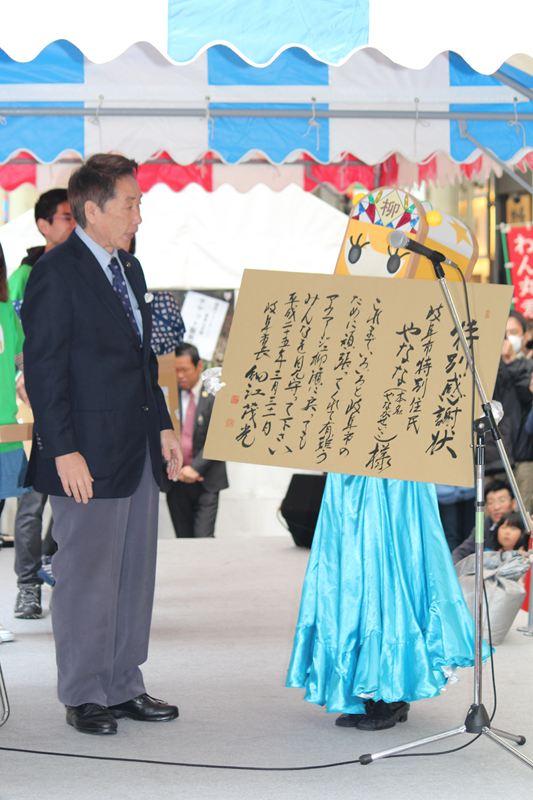 特別感謝状
岐阜市特別住民
やなな(本名 やなななこ)様
これまで、いろいろと岐阜市の
ために頑張ってくれて有難う
アマアゾン柳瀬に戻っても
みんなを見守って下さい
平成二十五年三月三十一日
岐阜市長 細江茂光
柳
わん丸